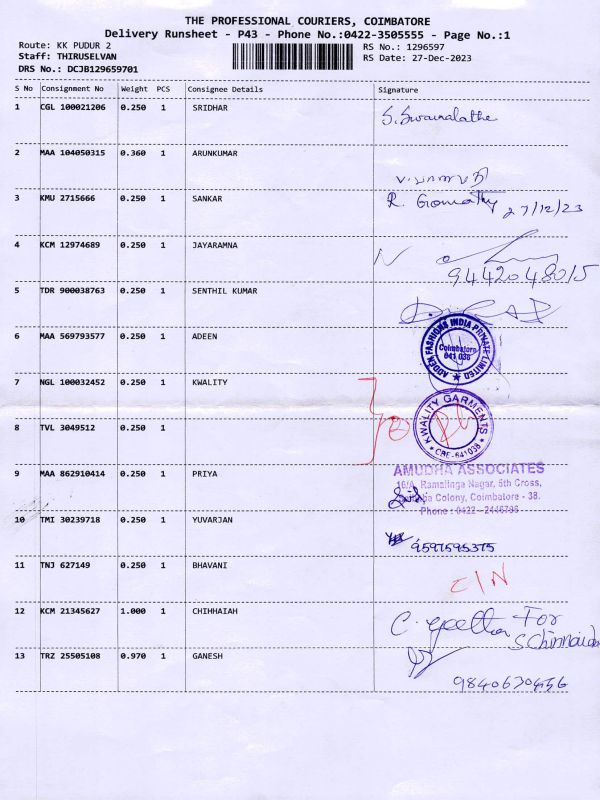 THE PROFESSIONAL COURIERS, COIMBATORE
Delivery Runsheet - P43 - Phone No.:0422-3505555 - Page No.:1
Route: KK PUDUR 2 RS No.: 1296597
Staff: THIRUSELVAN RS Date: 27-Dec-2023
DRS No.: DCJB129659701
S No Consignment No Weight PCS Consignee Details Signature
1 CGL 100021206 0.250 1 SRIDHAR
2 MAA 104050315 0.360 1 ARUNKUMAR
3 KMU 2715666 0.250 1 SANKAR R. Gomathy 27/12/23
4 KCM 12974689 0.250 1 JAYARAMNA
9442048015
5 TDR 900038763 0.250 1 SENTHIL KUMAR
6 MAA 569793577 0.250 1 ADEEN
ADDEN FASHIONS INDIA PRIVATE LIMITED
Coimbatore
641 038
7 NGL 100032452 0.250 1 KWALITY
KWALITY GARMENTS
* CBE-641038 *
8 TVL 3049512 0.250 1
9 MAA 862910414 0.250 1 PRIYA
AMUDHA ASSOCIATES
16/A, Ramalinga Nagar, 5th Cross,
Colony, Coimbatore - 38.
Phone : 0422 - 2446786
10 TMI 30239718 0.250 1 YUVARJAN
9597595375
11 TNJ 627149 0.250 1 BHAVANI C/N
12 KCM 21345627 1.000 1 CHIHHAIAH C. For
13 TRZ 25505108 0.970 1 GANESH
9840630456